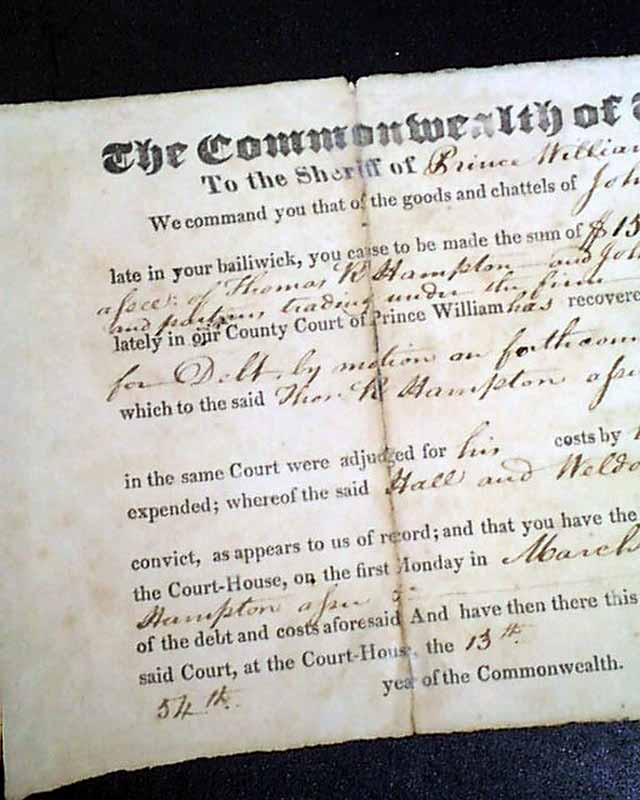 The Commonwealth of
To the Sheriff of Prince William
We command you that of the goods and chattels of Joh
late in your bailiwick, you cause to be made the sum of $ 15
assee: of Thomas R Hampton and Joh
and partners trading under the firm
lately in our County Court of Prince William has recovere
for Debt, by motion on forthcom
which to the said Thos. R Hampton assee
in the same Court were adjudged for his costs by
expended; whereof the said Hall and Weldo
convict, as appears to us of record; and that you have the
the Court-House, on the first Monday in March
Hampton assee
of the debt and costs aforesaid And have then there this
said Court, at the Court-House, the 13th
54th year of the Commonwealth.